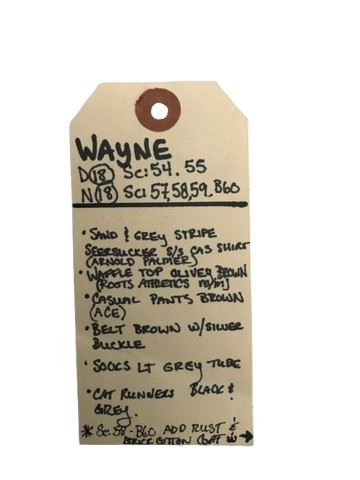 WAYNE
D(18) Sc: 54. 55
N(18) Sc: 57,58,59, B60
• SAND & GREY STRIPE
SEERSUCKER S/S CAS SHIRT
(ARNOLD PALMER)
• WAFFLE TOP OLIVER BROWN
(ROOTS ATHLETICS m/m)
• CASUAL PANTS BROWN
(ACE)
• BELT BROWN W/SILVER
BUCKLE
• SOCKS LT GREY TUBE
• CAT RUNNERS BLACK &
GREY.
* Sc: 58 - B60 ADD RUST &
BRICK COTTON COAT W →